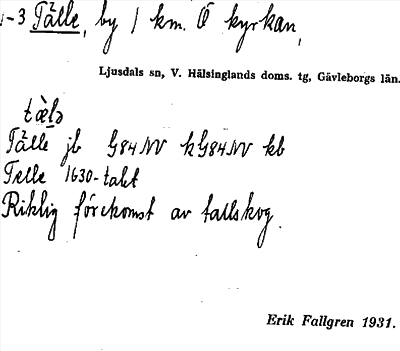 1-3 Tälle, by 1 km. Ö kyrkan,
Ljusdals sn, V. Hälsinglands doms. tg, Gävleborgs län.
tæ̀lə
Tälle jb G84NV kG84NV kb
Telle 1630-talet
Riklig förekomst av tallskog.
Erik Fallgren 1931.